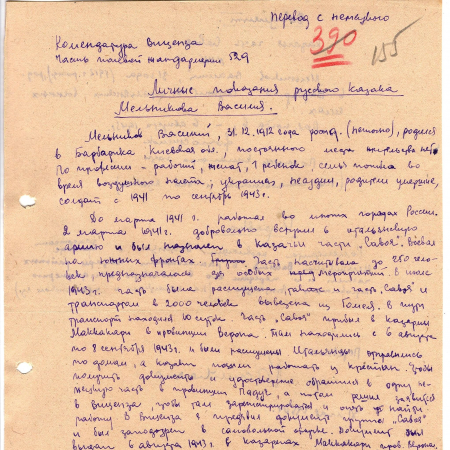 Перевод с немецкого
390
155
Комендатура Виценза
Часть полевой жандармерии 529
Личные показания русского казака
Мельникова Василия.
Мельников Василий, 31.12.1912 года рожд., родился
в Барбарика Киевской обл., постоянного места жительства нет.
По профессии - рабочий, женат, 1 ребенок, семья погибла во
время воздушного налета, украинец, родители умершие,
солдат с 1941 по сентябрь 1943г.
До марта 1941 г. работал во многих городах России.
В марте 1941г. добровольно вступил в итальянскую
армию и был назначен в казачьи части „Савоя“. Воевал
на южных фронтах. Часть насчитывала до
век, предназначалась для особых мероприятий. В июле
1943г. часть была распущена и часть „Савоя“ и
транспортам в 2000 человек вывезена из Гомеля. В пути
транспорт находился 10 суток. Часть „Савоя“ прибыла в казармы
Маккакари в провинции Верона. Там находились с 6 августа
по 8 сентября 1943г. и были распущены. Итальянцы отправились
по домам, а казаки пошли работать к крестьянам. Чтобы
получить документы и удостоверение обратился в одну не-
мецкую часть в провинции Падуя, а потом решил
в Виценза чтобы там зарегистрироваться и найти
работу. В Виценза я предъявил документ группы „Савоя“
и был заподозрен в Документ был
выдан 6 августа 1943г. в казармах Маккакари пров. Верона.